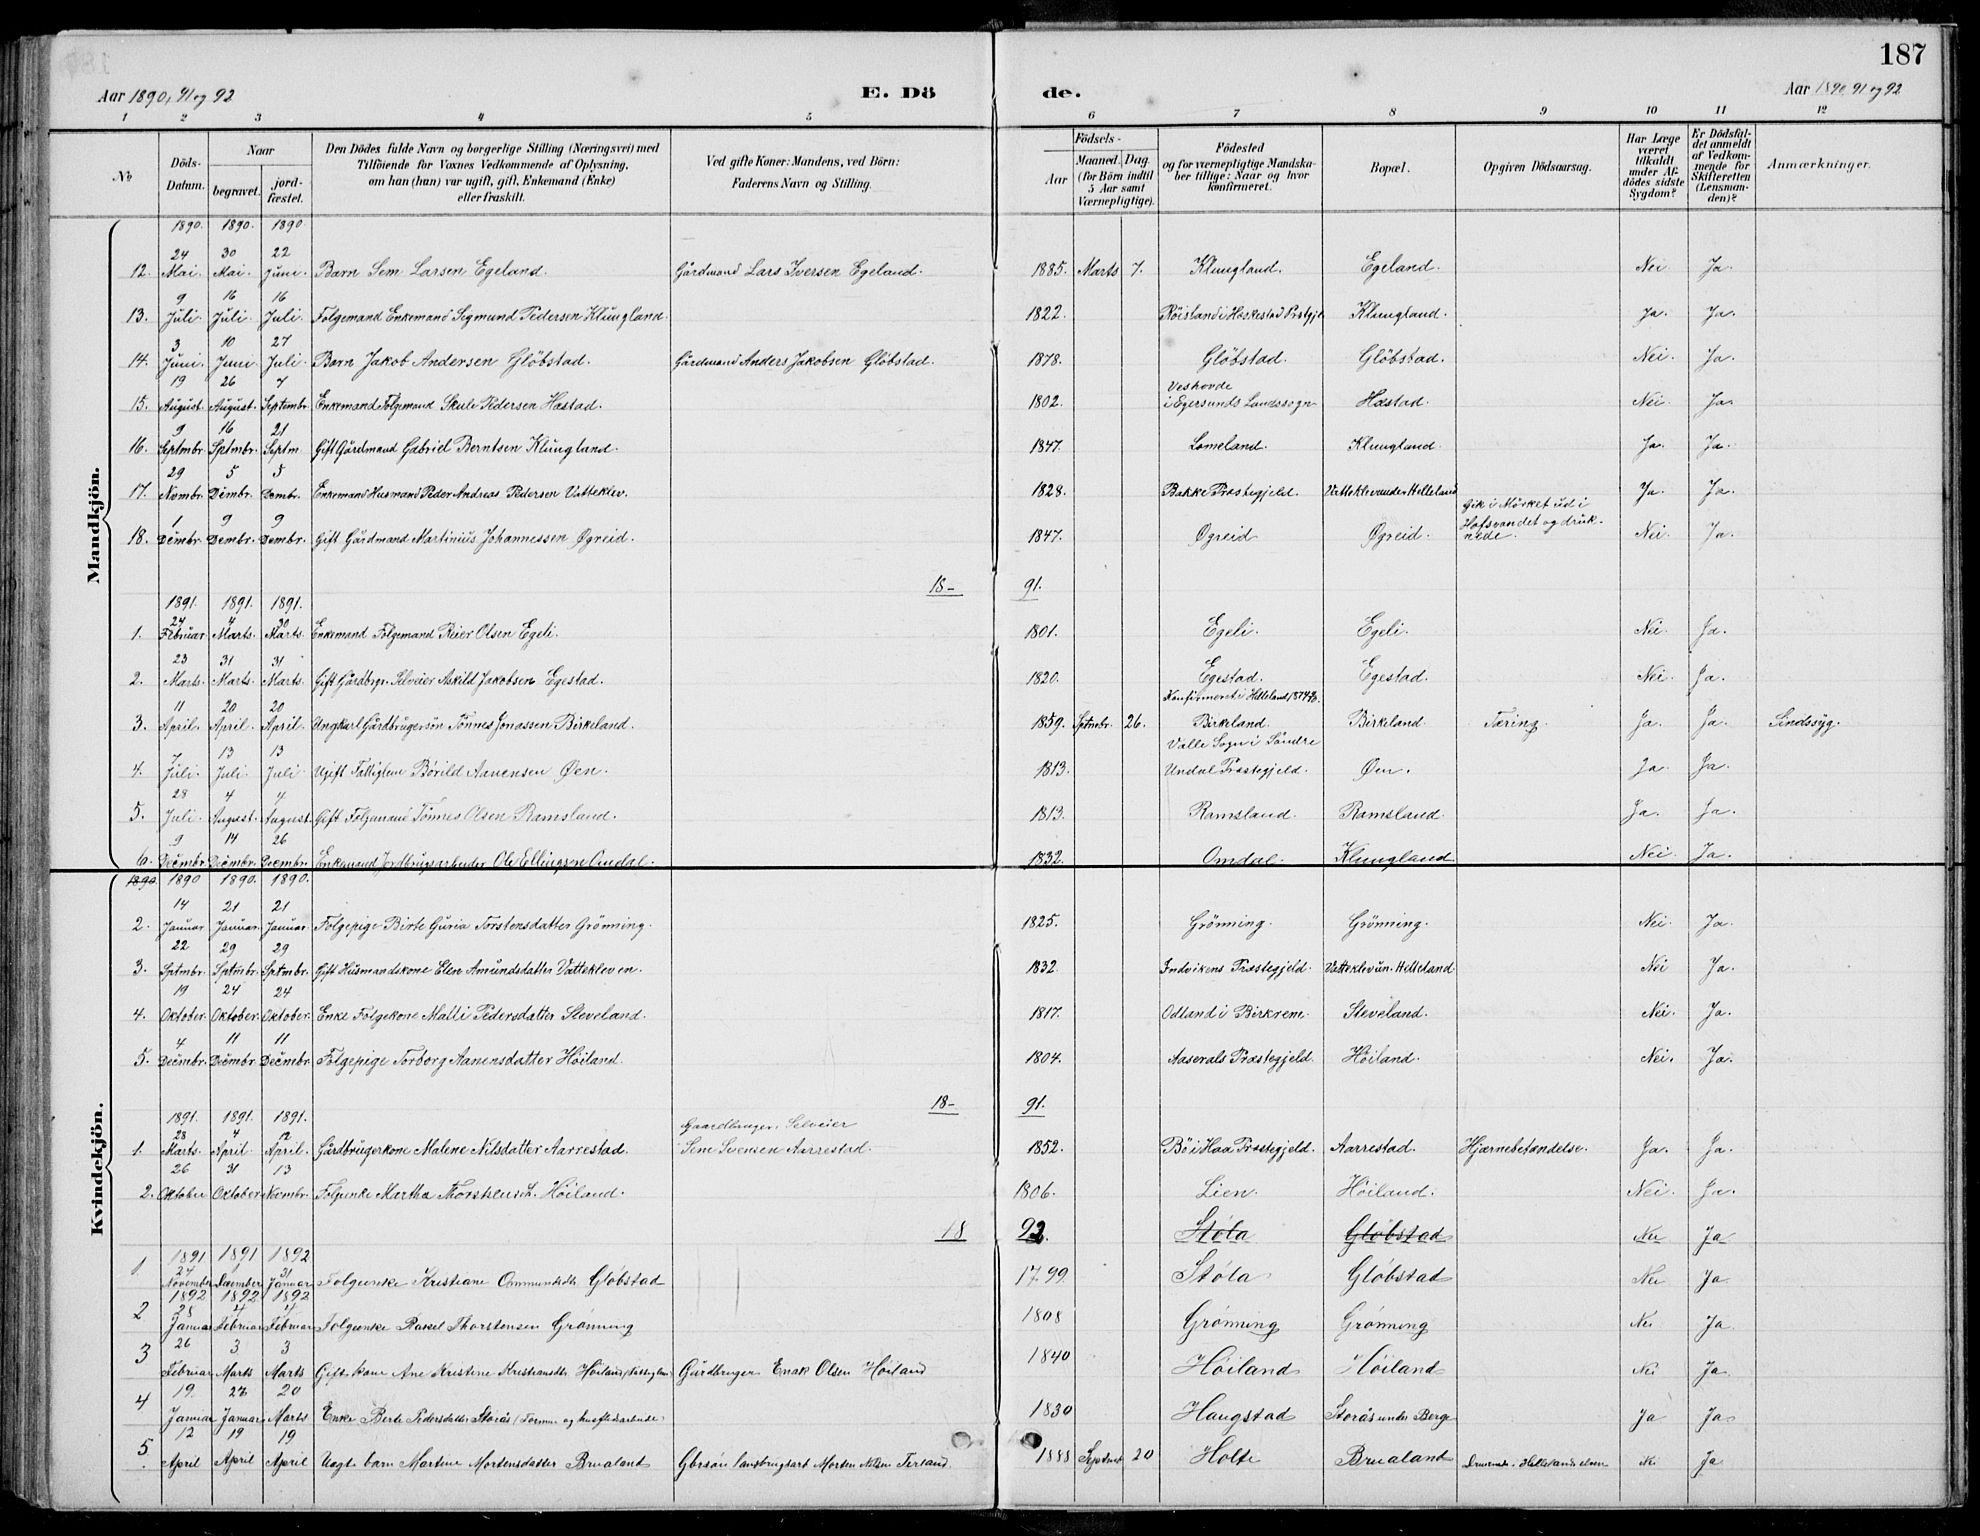 187
Aar 1890, 91 og 92 E. Dö de. Aar 1890, 91 og 92
1 2 3 4 5 6 7 8 9 10 11 12
No
Döds-Datum.
Naar
begravet.
jord-fæstet.
Den Dödes fulde Navn og borgerlige Stilling (Næringsvei) med
Tilföiende for Voxnes Vedkommende af Oplysning,
om han (hun) var ugift, gift, Enkemand (Enke)
eller fraskilt.
Ved gifte Koner: Mandens, ved Börn:
Faderens Navn og Stilling.
Födsels-
Aar
Maaned. Dag.
(for Börn indtil
5 Aar samt
Værnepligtige).
Födested
og for værnepligtige Mandska-
ber tillige: Naar og hvor
konfirmeret.
Bopæl.
Opgiven Dödsaarsag.
Har Læge
været
tilkaldt
under Af-
dödes sidste
Sygdom?
Er Dödsfal-
det anmeldt
af Vedkom-
mende for
Skifteretten
(Lensman-
den)?
Anmærkninger.
Mandkjön.
1890. 1890. 1890.
24 30 22
12. Mai. Mai. Juni. Barn Sem Larsen Egeland. Gårdmand Lars Iversen Egeland. 1885. Marts 7. Klungland. Egeland. Nei Ja.
9 16 16
13. Juli. Juli. Juli. Folgemand Enkemand Sigmund Pedersen Klungland. 1822. Röisland i Heskestad Præstgj Klungland. Ja. Ja.
3 10 27
14. Juni. Juni. Juli. Barn Jakob Andersen Glöbstad. Gårdmand Anders Jakobsen Glöbstad. 1878. Glöbstad. Glöbstad. Nei. Ja.
19 26 7 Veshovde
15. August. August. Septembr. Enkemand Folgemand Skule Pedersen Hæstad. 1802. i Egersunds Landssogn Hæstad. Nei. Ja.
9 16 21
16. Septmbr. Sptmbr. Septm. Gift Gårdmand Gabriel Berntsen Klungland. 1847. Lomeland. Klungland Ja. Ja.
29 5 5
17. Novmbr. Dembr. Dembr. Enkemand Husmand Peder Andreas Pedersen Vatteklev. 1828. Bakke Præstegjeld. Vatteklev under Helleland Ja. Ja.
Gik i Mörket ud i
1 9 9 Hofsvandet og druk-
18. Dembr. Dembr. Dembr. Gift Gårdmand Martinius Johannessen Øgreid. 1847. Øgreid Øgreid. nede. Nei. Ja.
18- 91.
1891. 1891. 1891.
24 4 30
1. Februar. Marts. Marts. Enkemand Folgemand Reier Olsen Egeli. 1801. Egeli. Egeli. Nei. Ja.
23 31 31
2. Marts. Marts. Marts. Gift Gårdbrgr. Selveier Askild Jakobsen Egestad. 1820. Egestad. Egestad. Nei. Ja.
11 20 20 Konfirmeret i Helleland 1874
3. April. April. April. Ungkarl Gårdbrugersön Tönnes Jonassen Birkeland. 1859. Sptmbr. 26. Birkeland. Birkeland. Tæring. Ja. Ja. Sindssyg.
7 13 13 Valle Sogn i Söndre
4. Juli. Juli. Juli. Ugift Fattiglem Börild Aanensen Øen. 1813. Undal Præstegjeld. Øen. Ja. Ja.
28 4 4
5. Juli. August. August. Gift Folgemand Tönnes Olsen Ramsland. 1813. Ramsland. Ramsland. Ja. Ja.
9 14 26
6. Decmbr. Decmbr. Decmbr. Enkemand Jordbrugsarbeider Ole Ellingsen Omdal. 1832. Omdal. Klungland Nei. Ja.
Kvindekjön.
1890 1890 1890. 1890.
14 21 21
2. Januar. Januar. Januar. Folgepige Birte Guria Torstensdatter Grönning. 1825. Grönning. Grönning. Nei. Ja.
22 29 29
3. Sptmbr. Sptmbr. Sptmbr. Gift Husmandskone Elen Amundsdatter Vatteklev en. 1832. Indvikens Præstegjeld. Vatteklev un. Helleland Nei Ja.
19 24 24
4. Oktober. Oktober. Oktober. Enke Folgekone Malli Pedersdatter Sleveland. 1817. Odland i Birkrem. Sleveland. Nei. Ja.
4 11 11
5. Decmbr. Decmbr. Decmbr. Folgepige Torborg Aanensdatter Höiland. 1804. Aaserals Præstegjeld. Höiland. Nei. Ja.
18- 91.
1891. 1891. 1891. Gaardbruger, Selveier
28 4 12
1. Marts. April. April. Gårdbrugerkone Malene Nilsdatter Aarrestad. Sem Svensen Aarrestad. 1852. Bö i Haa Præstegjeld. Aarrestad. Hjærnebetændelse. Ja. Ja.
26 31 13
2. Oktober Oktober Novmbr. Folgenke Martha Thorstensd. Höiland. 1806. Lien. Höiland. Nei. Ja.
18 92. Støla Gløbstad Nei Ja
1891 1891 1892
1 24 1 31
November December Januar Folgeenke Kristiane Ommundsdtr Gløbstad 1799 Støla Gløbstad Nei Ja
1892 1892 1892
2 28 4 4
Januar Februar Februar Folgeenke Rakel Thorstensen Grønning 1808 Grønning Grønning Nei Ja
26 3 3
3 Februar Marts Marts Gift kone Ane Kristine Kristiansdtr Høiland Gårdbruger Enok Olsen Høiland 1840 Høiland Høiland Nei Ja
19 27 20
4 Januar Januar Marts Enke Berte Pedersdatter Storås 1830 Haugstad Storås under Berge Ja Ja
12 19 19
5. April April April Uægte barn Martine Mortensdatter Brualand Gbrsön Morten Nilsen Terland. 1888 Septmbr 20 Holte Brualand Nei Ja